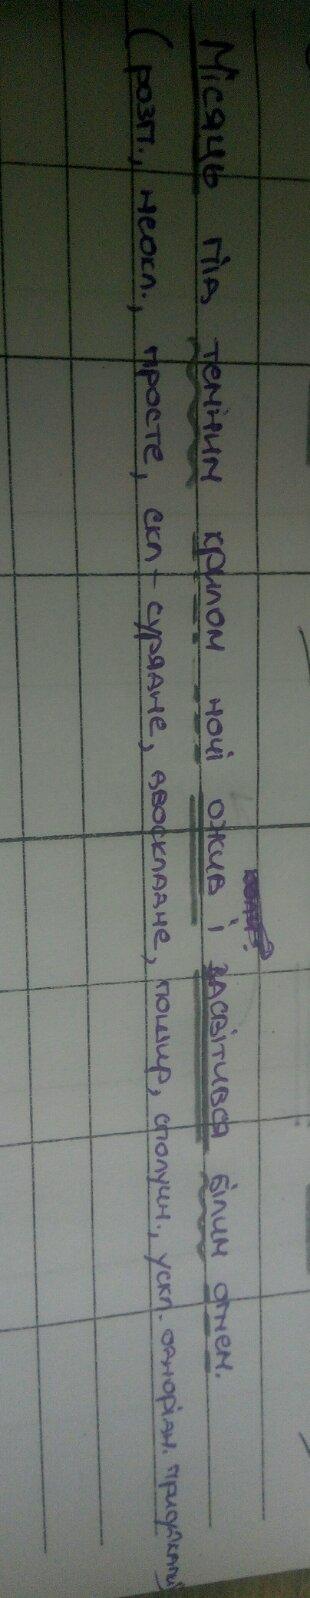 Місяць під темним крилом ночі ожив і засвітився білим огнем.
(розп., неокл., просте, скл - сурядне, двоскладне, пошир, сполучн., ускл. однорідн. присудками)